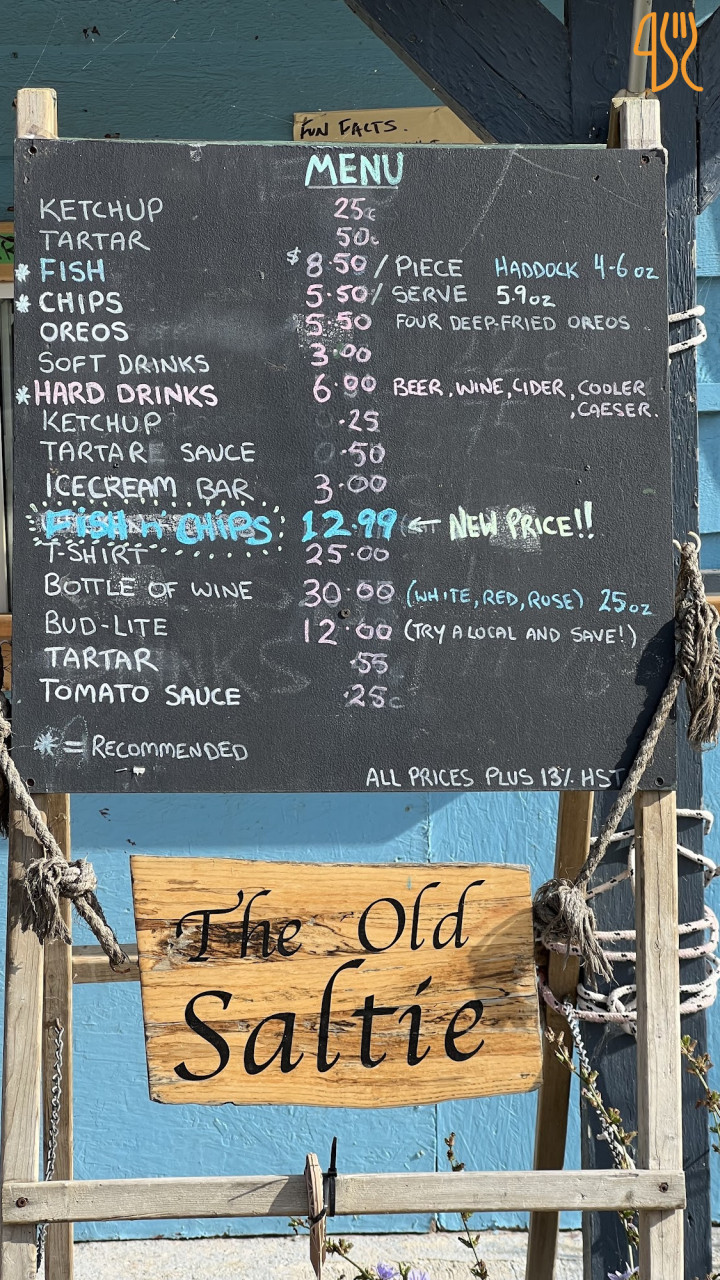 FUN FACTS.
MENU
KETCHUP 25¢
TARTAR 50¢
* FISH $8.50 / PIECE HADDOCK 4-6 oz
* CHIPS 5.50 / SERVE 5.9oz
OREOS 5.50 FOUR DEEP-FRIED OREOS
SOFT DRINKS 3.00
* HARD DRINKS 6.00 BEER, WINE, CIDER, COOLER
, CAESER.
KETCHUP .25
TARTARE SAUCE .50
ICECREAM BAR 3.00
FISH n' CHIPS 12.99 ← NEW PRICE!!
T-SHIRT 25.00
BOTTLE OF WINE 30.00 (WHITE, RED, ROSE) 25oz
BUD-LITE 12.00 (TRY A LOCAL AND SAVE!)
TARTAR .55
TOMATO SAUCE .25¢
* = RECOMMENDED
ALL PRICES PLUS 13% HST
The Old
Saltie